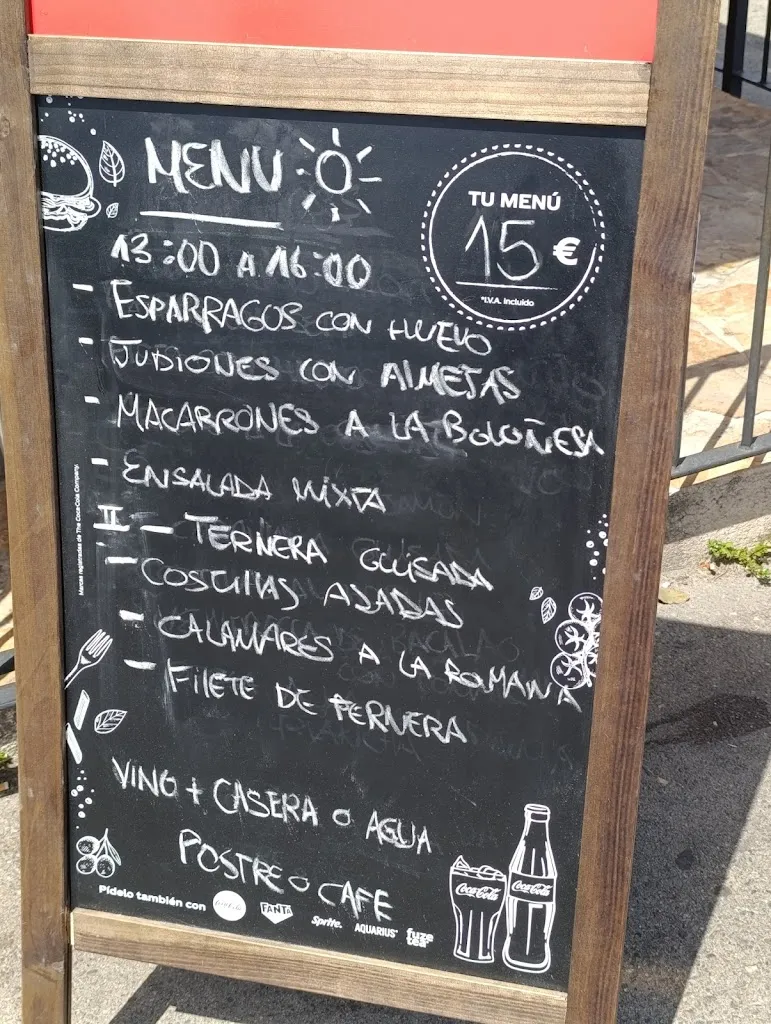 MENU
TU MENÚ
15 €
*I.V.A. Incluido
13:00 A 16:00
- ESPARRAGOS CON HUEVO
- JUDIONES CON AlMEJAS
- MACARRONES A LA BOLOÑESA
- ENSALADA MIXTA
II - TERNERA GUISADA
- COSTILLAS ASADAS
- CALAMARES A LA ROMANA
- FILETE DE TERNERA
VINO + CASERA O AGUA
POSTRE O CAFE
Pídelo también con Coca-Cola FANTA Sprite. AQUARIUS fuze tea
Coca-Cola Coca-Cola
Marcas registradas de The Coca-Cola Company.